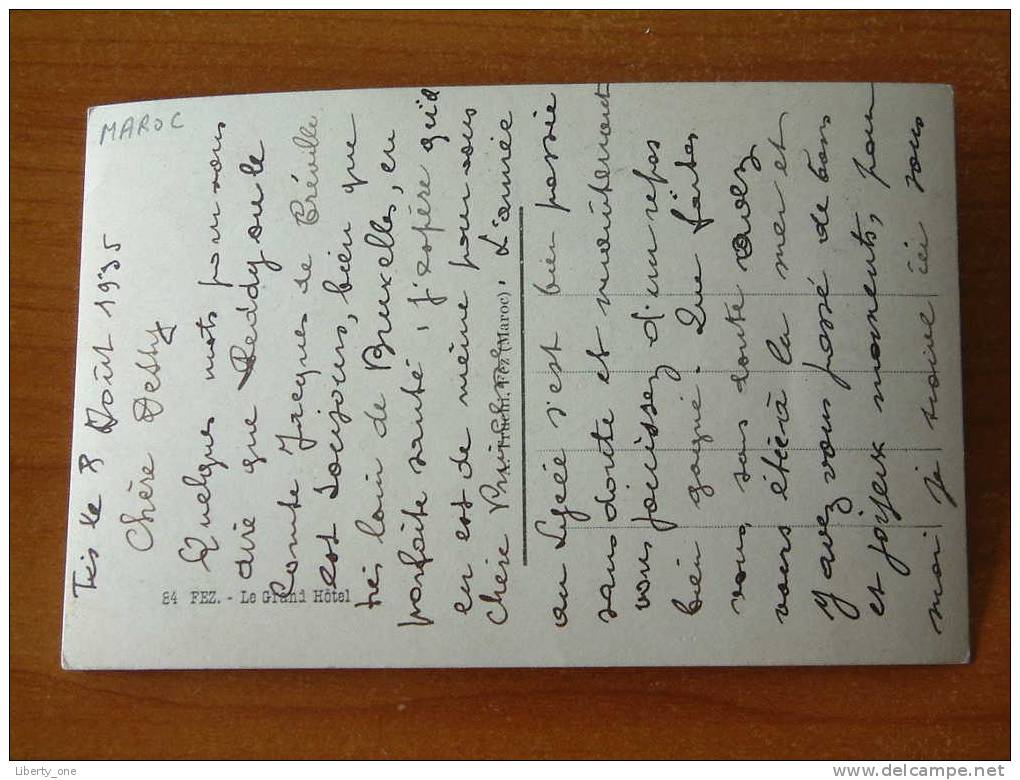 MAROC
Fès le 8 Août 1935
Chère Detty
Quelques mots pour vous
dire que Peddy ou le
Comte Jacques de Préville
est toujours, bien que
très loin de Bruxelles, en
parfaite santé, j'espère qu'il
en est de même pour vous
Chère Princesse. L'année
84 FEZ. - Le Grand Hôtel
FEZ (Maroc)
au Lycée s'est bien passée
sans doute et maintenant
vous jouissez d'un repos
bien gagné. Que faites
vous, sans doute avez
vous été à la mer et
y avez vous passé de bons
et joyeux moments, pour
moi je suis ici vous
Liberty_one
www.delcampe.net